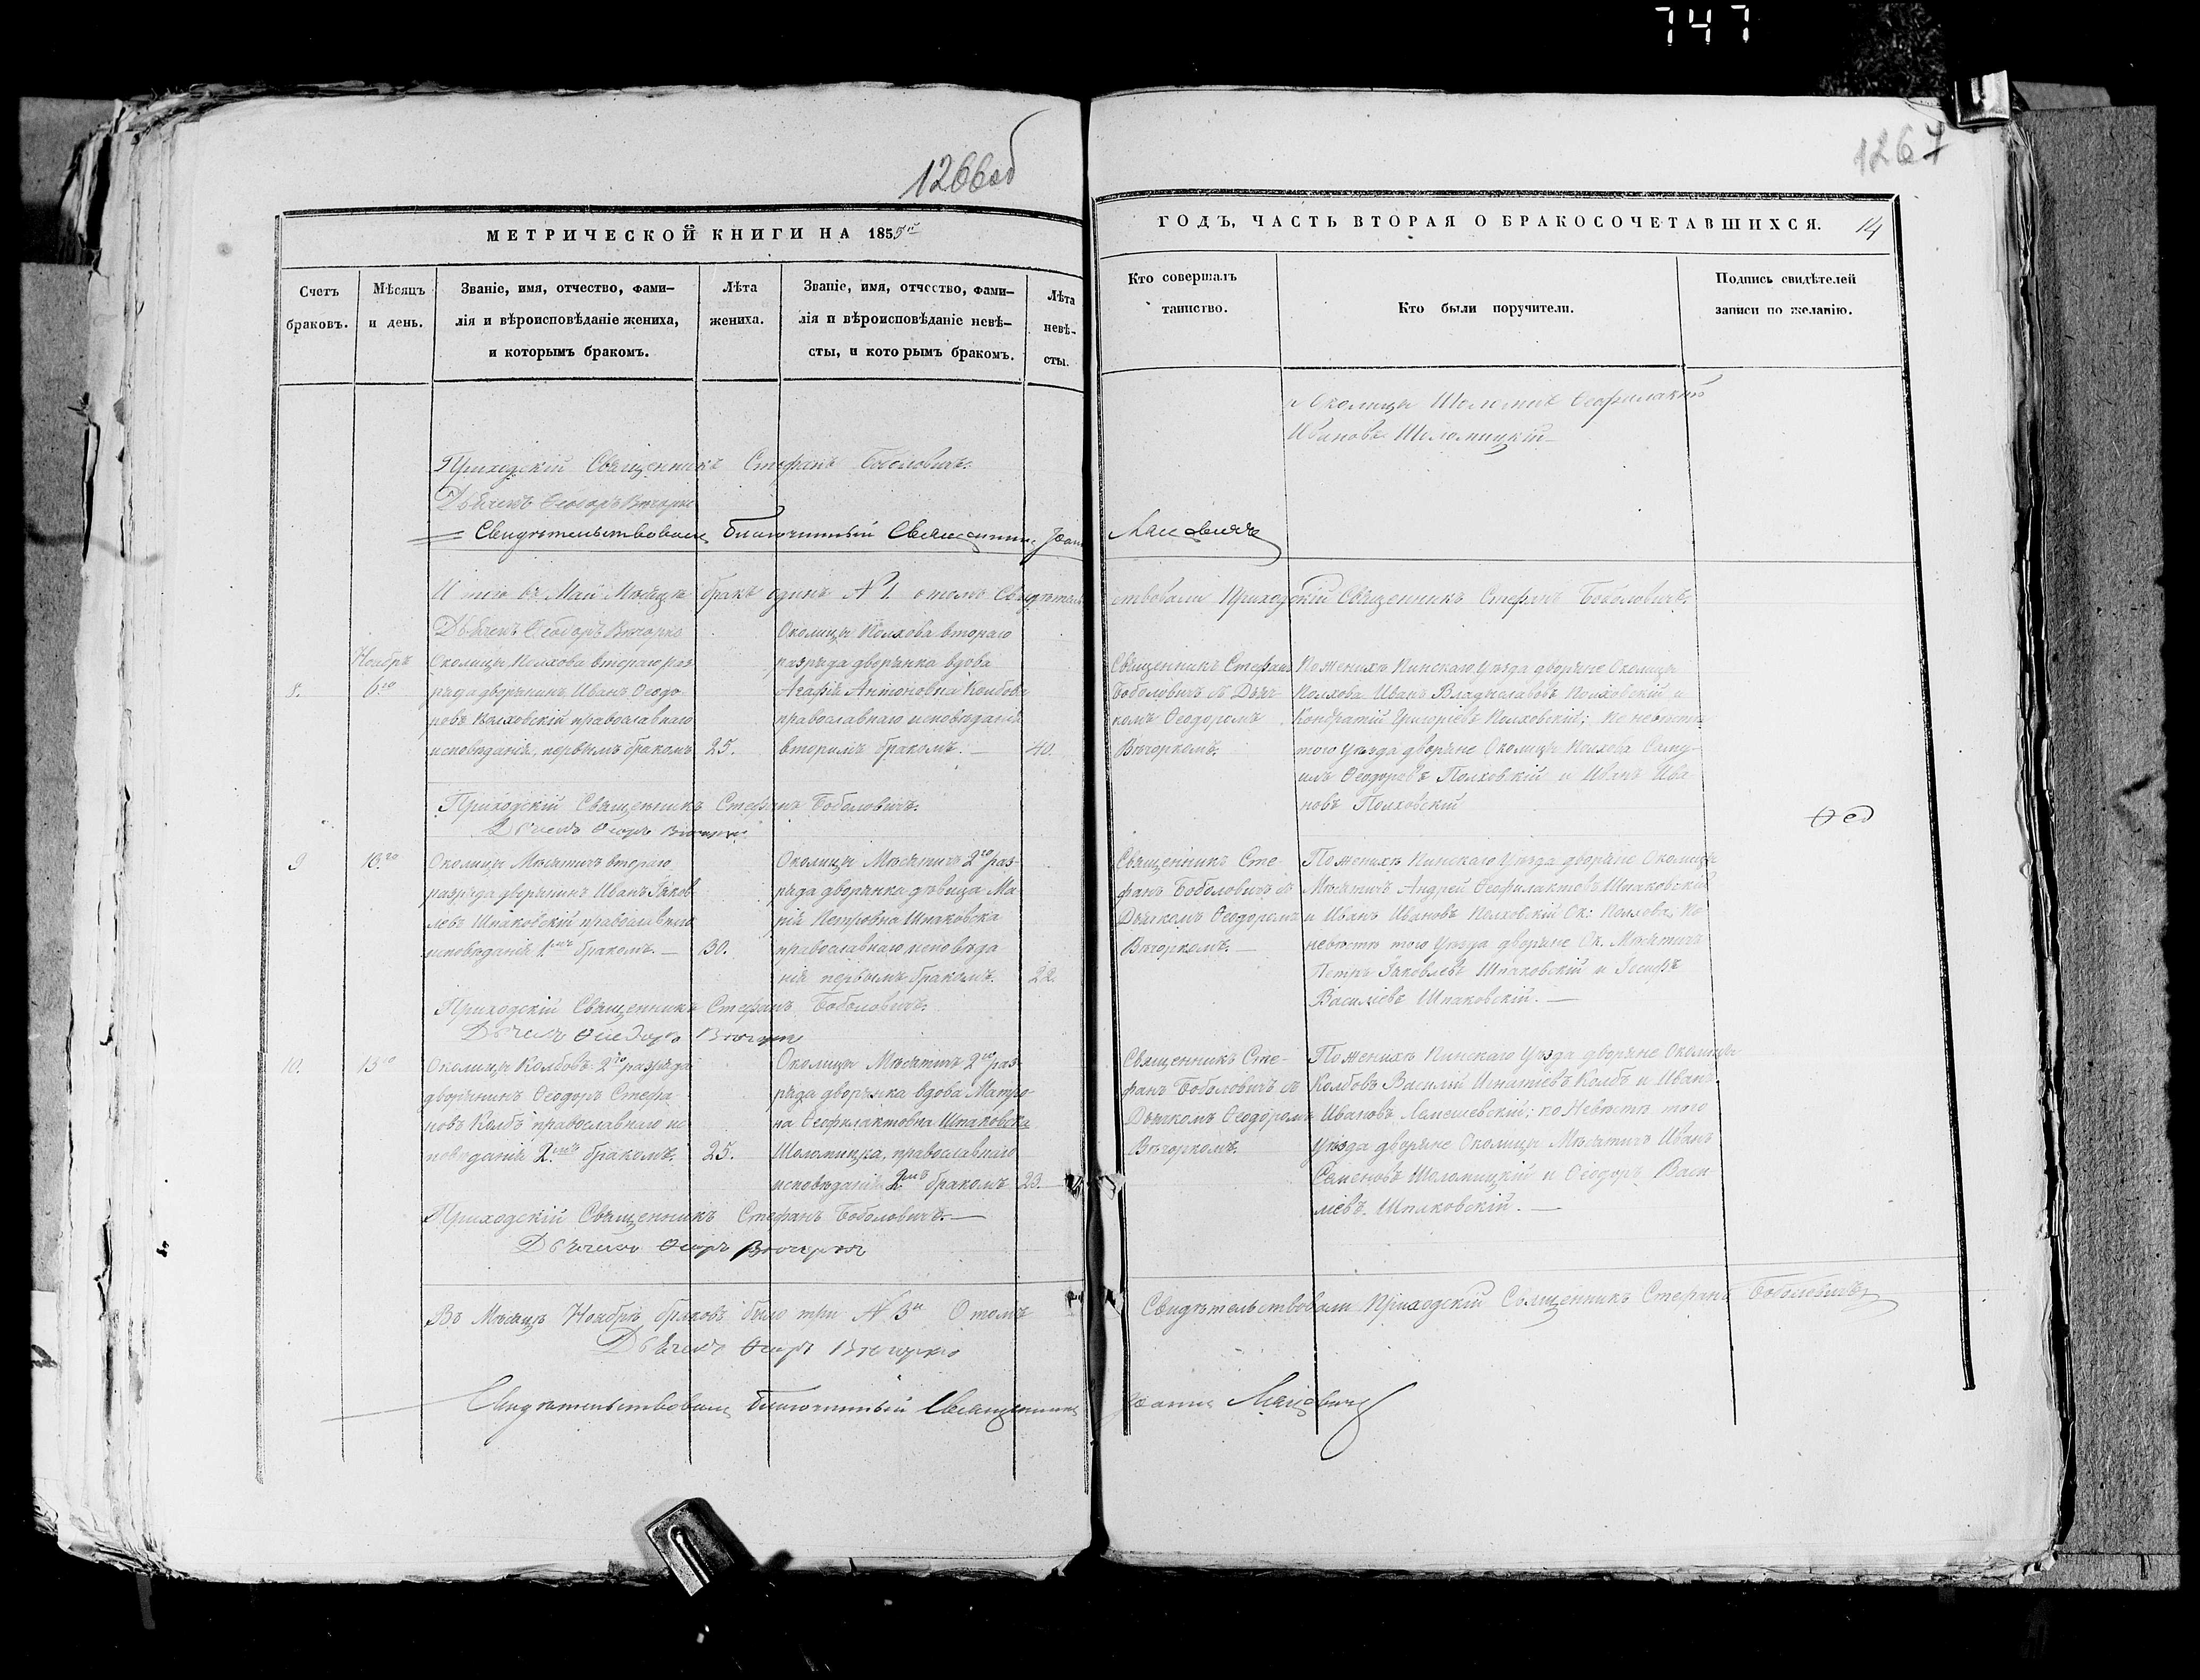 747
1266об
1267
МЕТРИЧЕСКОЙ КНИГИ НА 1855й
Счетъ браковъ.
Мѣсяцъ и день.
Званіе, имя, отчество, фами-
лія и вѣроисповѣданіе жениха,
и которымъ бракомъ.
Лѣта жениха.
Званіе, имя, отчество, фами-
лія и вѣроисповѣданіе невѣ-
сты, и которымъ бракомъ.
Лѣта невѣ-
сты.
ГОДЪ, ЧАСТЬ ВТОРАЯ О БРАКОСОЧЕТАВШИХСЯ. 14
Кто совершалъ
таинство.
Кто были поручители.
Подпись свидѣтелей
записи по желанію.
и Околицы Шоломичъ Ѳеофилактъ
Ивановъ Шоломицкій
Приходскій Священникъ Стефанъ Боболовичъ.
Дьячекъ Ѳеодоръ Вечорко
Свидѣтельствовалъ благочинный Священникъ
И того въ Май Мѣсяцѣ бракъ одинъ № 1. о томъ Свидѣтель
ствовали Приходскій Священникъ Стефанъ Боболовичъ.
Дьячекъ Ѳеодоръ Вечорко
Ноября
8.
6го
Околицы Полхова втораго раз
ряда дворянинъ Иванъ Ѳеодо
ровъ Полховскій православнаго
исповѣданія, первымъ бракомъ
25.
Околицы Полхова втораго
разряда дворянка вдова
Агафія Антоновна Колбова
православнаго исповѣданія
вторымъ бракомъ.
40.
Священникъ Стефанъ
Боболовичъ съ Дьяч-
комъ Ѳеодоромъ
Вѣчоркомъ.
По женихѣ Пинскаго Уѣзда дворяне Околицы
Полхова Иванъ Владиславовъ Полховскій и
Кондратій Григоріевъ Полховскій; по невѣстѣ
того Уѣзда дворяне Околицы Полхова Саму-
илъ Ѳеодоровъ Полховскій и Иванъ Ива
новъ Полховскій
Приходскій Священникъ Стефанъ Боболовичъ.
9
10.го
Околицы Мѣсятичъ втораго
разряда дворянинъ Иванъ Яков
левъ Шпаковскій православнаго
исповѣданія 1мъ бракомъ.
30.
Околицы Мѣсятичъ 2го раз-
ряда дворянка дѣвица Ма-
рія Петровна Шпаковска
православнаго исповѣда
нія первымъ бракомъ.
22.
Священникъ Сте-
фанъ Боболовичъ съ
Дьячкомъ Ѳеодоромъ
Вѣчоркомъ.
По женихѣ Пинскаго Уѣзда дворяне Околицы
Мѣсятичъ Андрей Ѳеофилактовъ Шпаковскій
и Иванъ Ивановъ Полховскій Ок: Полхова; по
невѣстѣ того Уѣзда дворяне Ок. Мѣсятичъ
Петръ Яковлевъ Шпаковскій и Іосифъ
Василіевъ Шпаковскій.
Приходскій Священникъ Стефанъ Боболовичъ.
10.
13го
Околицы Колбовъ 2го разряда
дворянинъ Ѳеодоръ Стефа
новъ Колбъ православнаго ис
повѣданія 2мъ бракомъ.
25.
Околицы Мѣсятичъ 2го раз
ряда дворянка вдова Матро
на Ѳеофилактовна Шпаковска
Шоломицка, православнаго
исповѣданія 2мъ бракомъ
23.
Священникъ Сте-
фанъ Боболовичъ съ
Дьячкомъ Ѳеодоромъ
Вѣчоркомъ.
По женихѣ Пинскаго Уѣзда дворяне Околицы
Колбовъ Василій Игнатіевъ Колбъ и Иванъ
Ивановъ Лемешевскій; по Невѣстѣ того
Уѣзда дворяне Околицы Мѣсятичъ Иванъ
Семеновъ Шоломицкій и Ѳеодоръ Васи
ліевъ Шпаковскій.
Приходскій Священникъ Стефанъ Боболовичъ.
Въ Мѣсяцъ Ноябрѣ браковъ было три № 3й О томъ
Свидѣтельствовали Приходскій Священникъ Стефанъ Боболовичъ
Свидѣтельствовалъ благочинный Священникъ